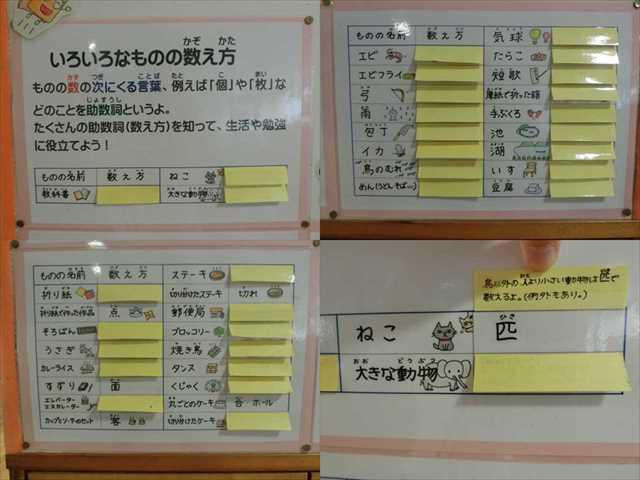 いろいろなものの数え方
ものの数の次にくる言葉、例えば「個」や「枚」な
どのことを助数詞というよ。
たくさんの助数詞(数え方)を知って、生活や勉強
に役立てよう!
ものの名前 数え方 ねこ
教科書 大きな動物
ものの名前 数え方 気球
エビ たらこ
エビフライ 短歌
弓 折り紙で折った鶴
雨 手ぶくろ
包丁 池
イカ 湖
鳥のむれ いす
めん(うどん、そば…) 豆腐
ものの名前 数え方 ステーキ
折り紙 切り分けたステーキ 切れ
折り紙で作った作品 点 郵便局
そろばん ブロッコリー
うさぎ 焼き鳥
カレーライス タンス
すずり 面 くじゃく
エレベーター
エスカレーター 丸ごとのケーキ 台・ホール
カップとソーサーのセット 客 切り分けたケーキ
鳥以外の人より小さい動物は匹で
数えるよ。(例外もあり。)
ねこ 匹
大きな動物